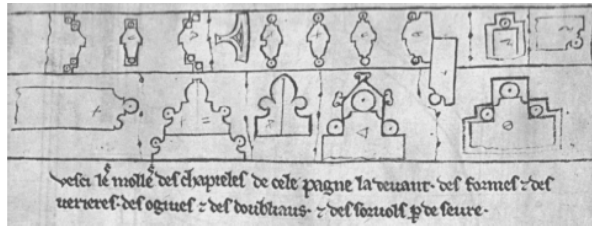 vesci les molles des chapieles de cele pagne la devant · des formes ⁊ des
verieres · des ogives ⁊ des doubliaus · ⁊ des sorvols p̱ de seure ·